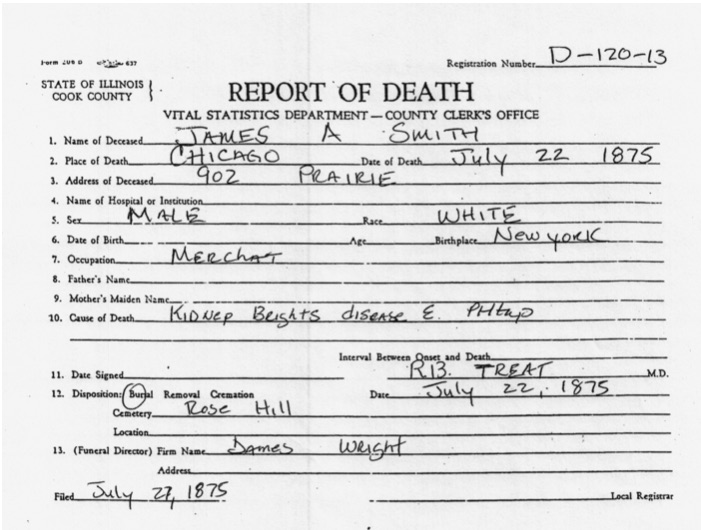 Registration Number D-120-13
STATE OF ILLINOIS
COOK COUNTY
REPORT OF DEATH
VITAL STATISTICS DEPARTMENT — COUNTY CLERK'S OFFICE
1. Name of Deceased JAMES A SMITH
2. Place of Death CHICAGO Date of Death July 22 1875
3. Address of Deceased 902 PRAIRIE
4. Name of Hospital or Institution
5. Sex MALE Race WHITE
6. Date of Birth Age Birthplace New York
7. Occupation MERChAT
8. Father's Name
9. Mother's Maiden Name
10. Cause of Death Brights disease E.
Interval Between Onset and Death
11. Date Signed TREAT M.D.
12. Disposition: Burial Removal Cremation Date July 22, 1875
Cemetery Rose Hill
Location
13. (Funeral Director) Firm Name James Wright
Address
Filed July 27, 1875 Local Registrar